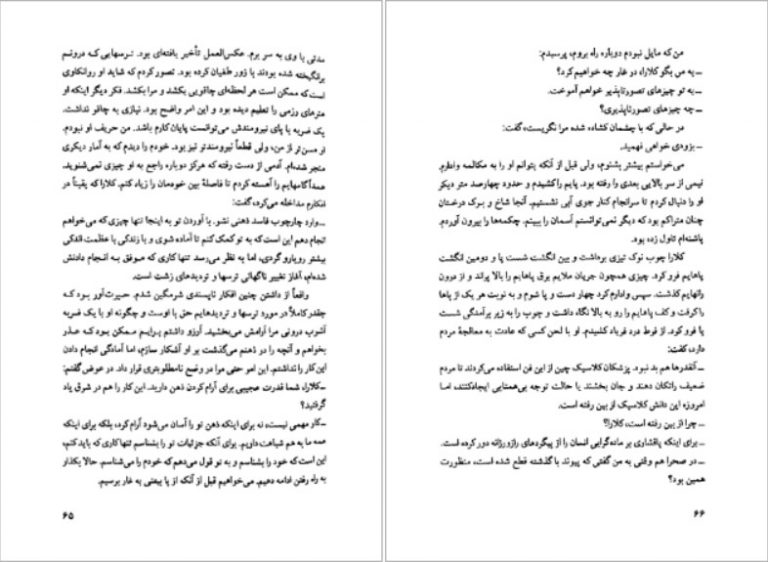 مدتی با وی به سر برم. عکس‌العمل تأخیر یافته‌ای بود. ترسهایی که درونم
برانگیخته شده بودند با زور طغیان کرده بود. تصور کردم که شاید او روانکاوی
است که ممکن است هر لحظه‌ای چاقویی بکشد و مرا بکشد. فکر دیگر اینکه او
هنرهای رزمی را تعلیم دیده بود و این امر واضح بود. نیازی به چاقو نداشت.
یک ضربه با پای نیرومندش می‌توانست پایان کارم باشد. من حریف او نبودم.
او مسن‌تر از من، ولی قطعاً نیرومندتر نیز بود. خودم را دیدم که به آمار دیگری
منجر شده‌ام. آدمی از دست رفته که هرگز دوباره راجع به او چیزی نمی‌شنوید.
عمداً گامهایم را آهسته کردم تا فاصلهٔ بین خودمان را زیاد کنم. کلارا که یقیناً در
افکارم مداخله می‌کرد، گفت:
ـ وارد چارچوب فاسد ذهنی نشو. با آوردن تو به اینجا تنها چیزی که می‌خواهم
انجام دهم این است که به تو کمک کنم تا آماده شوی و با زندگی با عظمت اندکی
بیشتر روبارو گردی، اما به نظر می‌رسد تنها کاری که موفق به انجام دادنش
شده‌ام، آغاز تغییر ناگهانی ترسها و تردیدهای زشت است.
واقعاً از داشتن چنین افکار ناپسندی شرمگین شدم. حیرت‌آور بود که
چقدر کاملاً در مورد ترسها و تردیدهایم حق با اوست و چگونه او با یک ضربه
آشوب درونی مرا آرامش می‌بخشید. آرزو داشتم برایم ممکن بود که عذر
بخواهم و آنچه را در ذهنم می‌گذشت بر او آشکار سازم، اما آمادگی انجام دادن
این کار را نداشتم. این امر حتی مرا در وضع نامطلوبتری قرار داد. در عوض گفتم:
ـ کلارا، شما قدرت عجیبی برای آرام کردن ذهن دارید. این کار را هم در شرق یاد
گرفتید؟
ـ کار مهمی نیست، نه برای اینکه ذهن تو را آسان می‌شود آرام کرد، بلکه برای اینکه
همه ما به هم شباهت داریم. برای آنکه جزئیات تو را بشناسم تنها کاری که باید کنم،
این است که خود را بشناسم و به تو قول می‌دهم که خودم را می‌شناسم. حالا بگذار
به راه رفتن ادامه دهیم. می‌خواهیم قبل از آنکه از پا بیفتی به غار برسیم.
۶۵
من که مایل نبودم دوباره راه بروم، پرسیدم:
ـ به من بگو کلارا، در غار چه خواهیم کرد؟
ـ به تو چیزهای تصورناپذیر خواهم آموخت.
ـ چه چیزهای تصورناپذیری؟
در حالی که با چشمان گشاده شده مرا نگریست، گفت:
ـ بزودی خواهی فهمید.
می‌خواستم بیشتر بشنوم، ولی قبل از آنکه بتوانم او را به مکالمه وادارم
نیمی از سر بالایی بعدی را رفته بود. پایم را کشیدم و حدود چهارصد متر دیگر
او را دنبال کردم تا سرانجام کنار جوی آبی نشستیم. آنجا شاخ و برگ درختان
چنان متراکم بود که دیگر نمی‌توانستم آسمان را ببینم. چکمه‌ها را بیرون آوردم.
پاشنه‌ام تاول زده بود.
کلارا چوب نوک تیزی برداشت و بین انگشت شست پا و دومین انگشت
پاهایم فرو کرد. چیزی همچون جریان ملایم برق پاهایم را بالا پراند و از درون
رانهایم گذشت. سپس وادارم کرد چهار دست و پا شوم و به نوبت هر یک از پاها
را گرفت و کف پاهایم را رو به بالا نگاه داشت و چوب را به زیر برآمدگی شست
پا فرو کرد. از فرط درد فریاد کشیدم. او با لحن کسی که عادت به معالجهٔ مردم
دارد، گفت:
ـ آنقدرها هم بد نبود. پزشکان کلاسیک چین از این فن استفاده می‌کردند تا مردم
ضعیف را تکان دهند و جان بخشند یا حالت توجه بی‌همتایی ایجاد کنند، اما
امروزه این دانش کلاسیک از بین رفته است.
ـ چرا از بین رفته است، کلارا؟
ـ برای اینکه پافشاوی بر ماده‌گرایی انسان را از پیگردهای رازورزانه دور کرده است.
ـ در صحرا هم وقتی به من گفتی که پیوند با گذشته قطع شده است، منظورت
همین بود؟
۶۶